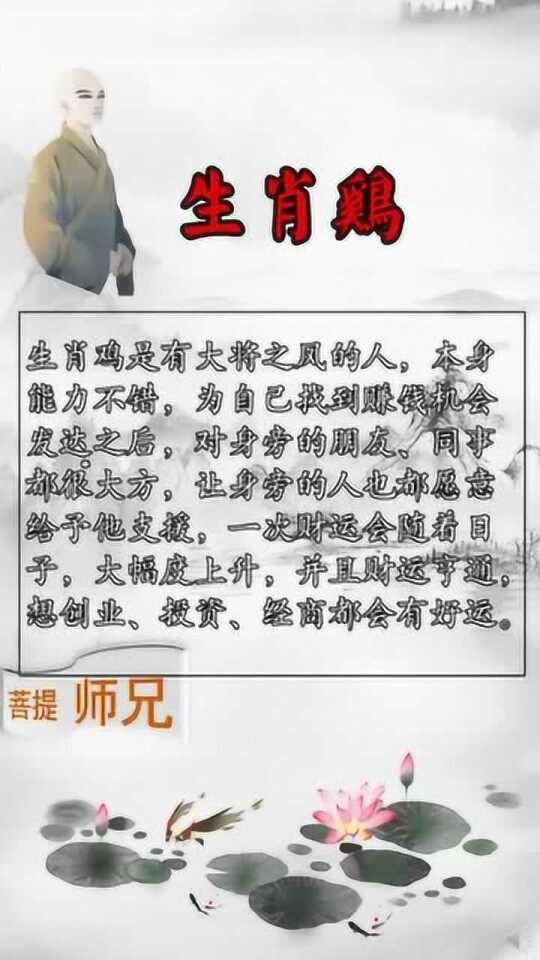 生肖鷄
生肖鸡是有大将之风的人，本身
能力不错，为自己找到赚钱机会
发达之后，对身旁的朋友、同事
都很大方，让身旁的人也都愿意
给予他支援，一次财运会随着日
子，大幅度上升，并且财运亨通，
想创业、投资、经商都会有好运。
菩提 师兄